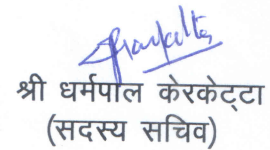 श्री धर्मपाल केरकेट्टा
(सदस्य सचिव)